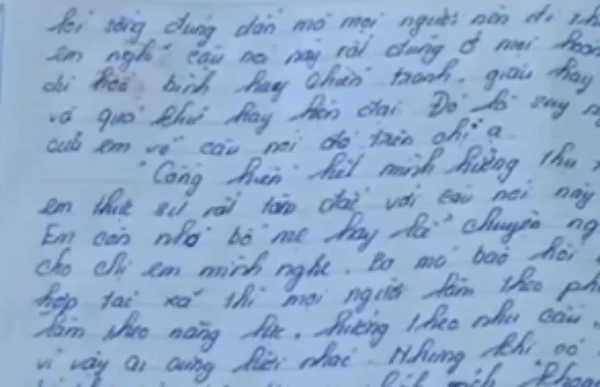 lối sống đúng đắn mà mọi người nên đi th
em nghĩ câu nói này rất đúng ở mọi hoàn
dù hoà bình hay chiến tranh, giàu hay
và quá khứ hay hiện đại. Đó là suy ng
của em về câu nói đó trên chị ạ.
"Cống hiến hết mình hưởng thụ
em thực sự rất tâm đắc với câu nói này
Em còn nhớ bố mẹ hay kể chuyện ng
cho chị em mình nghe. Bố mẹ bảo hồi
hợp tác xã thì mọi người làm theo ph
làm theo năng lực, hưởng theo nhu cầu.
vì vậy ai cũng lười nhác. Nhưng khi có